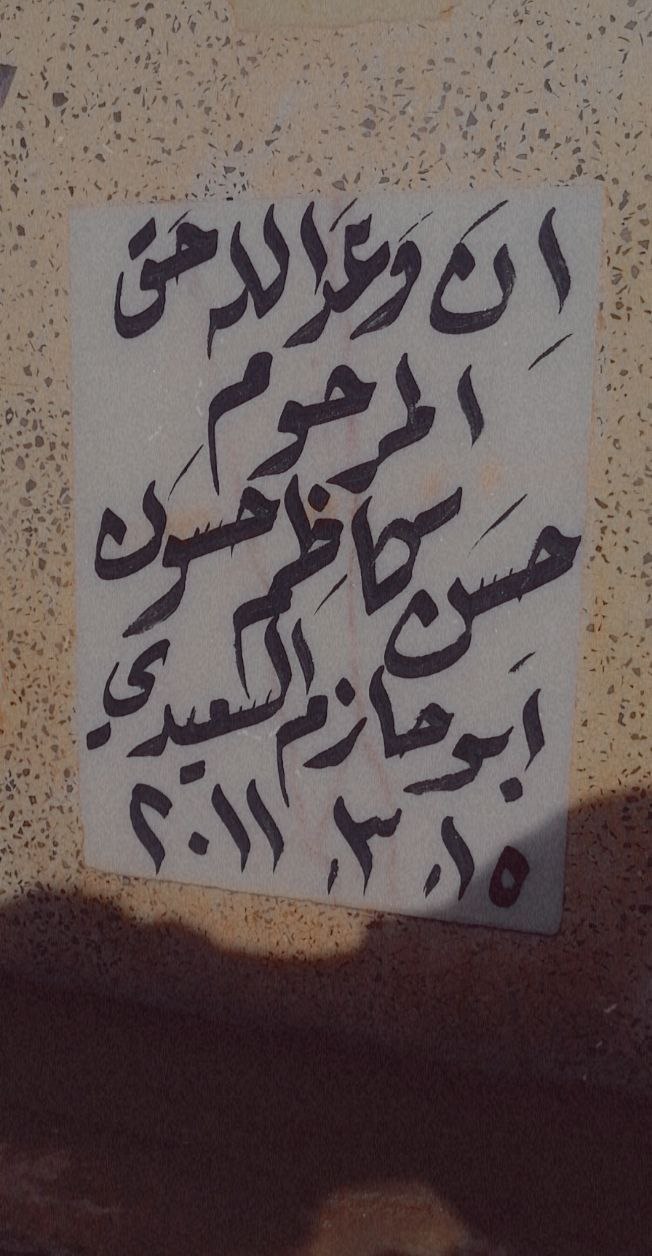 اِنَ وَعدَ الله حَق
المرحوم
حسَن كاظِم حسوَن
اَبو حازم السعيدي
١٥. ٣. ٢٠١١